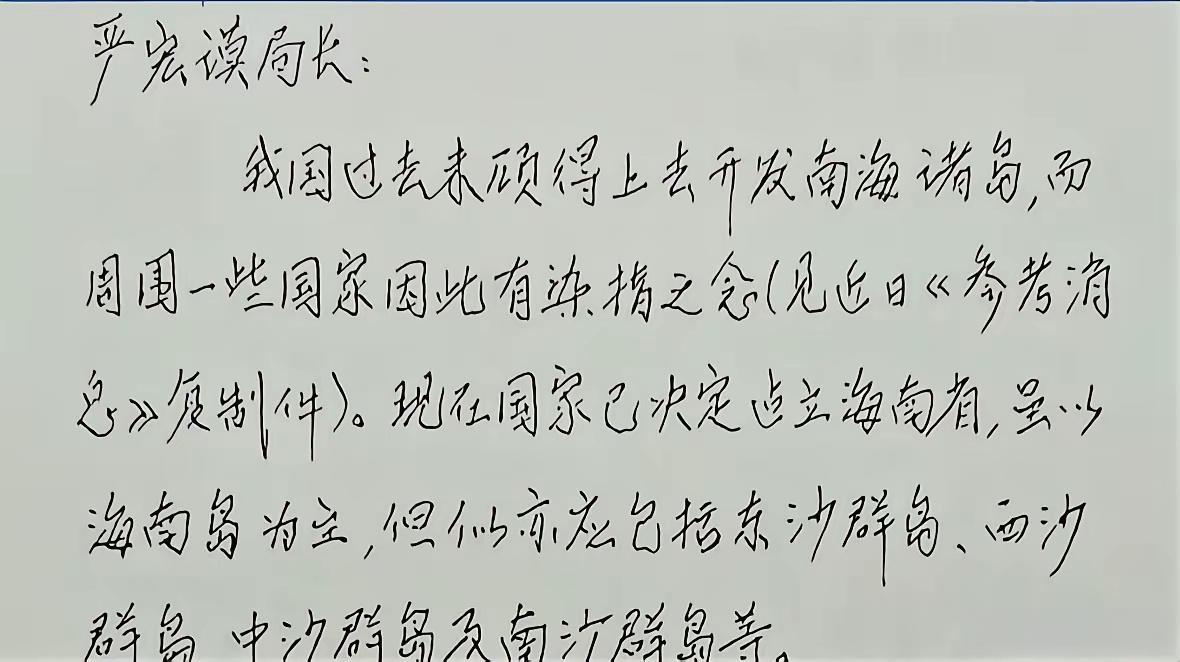 严宏谟局长:
我国过去未顾得上去开发南海诸岛,而
周围一些国家因此有染指之念(见近日《参考消
息》复制件)。现在国家已决定建立海南省,虽以
海南岛为主,但似亦应包括东沙群岛、西沙
群岛 中沙群岛及南沙群岛等。